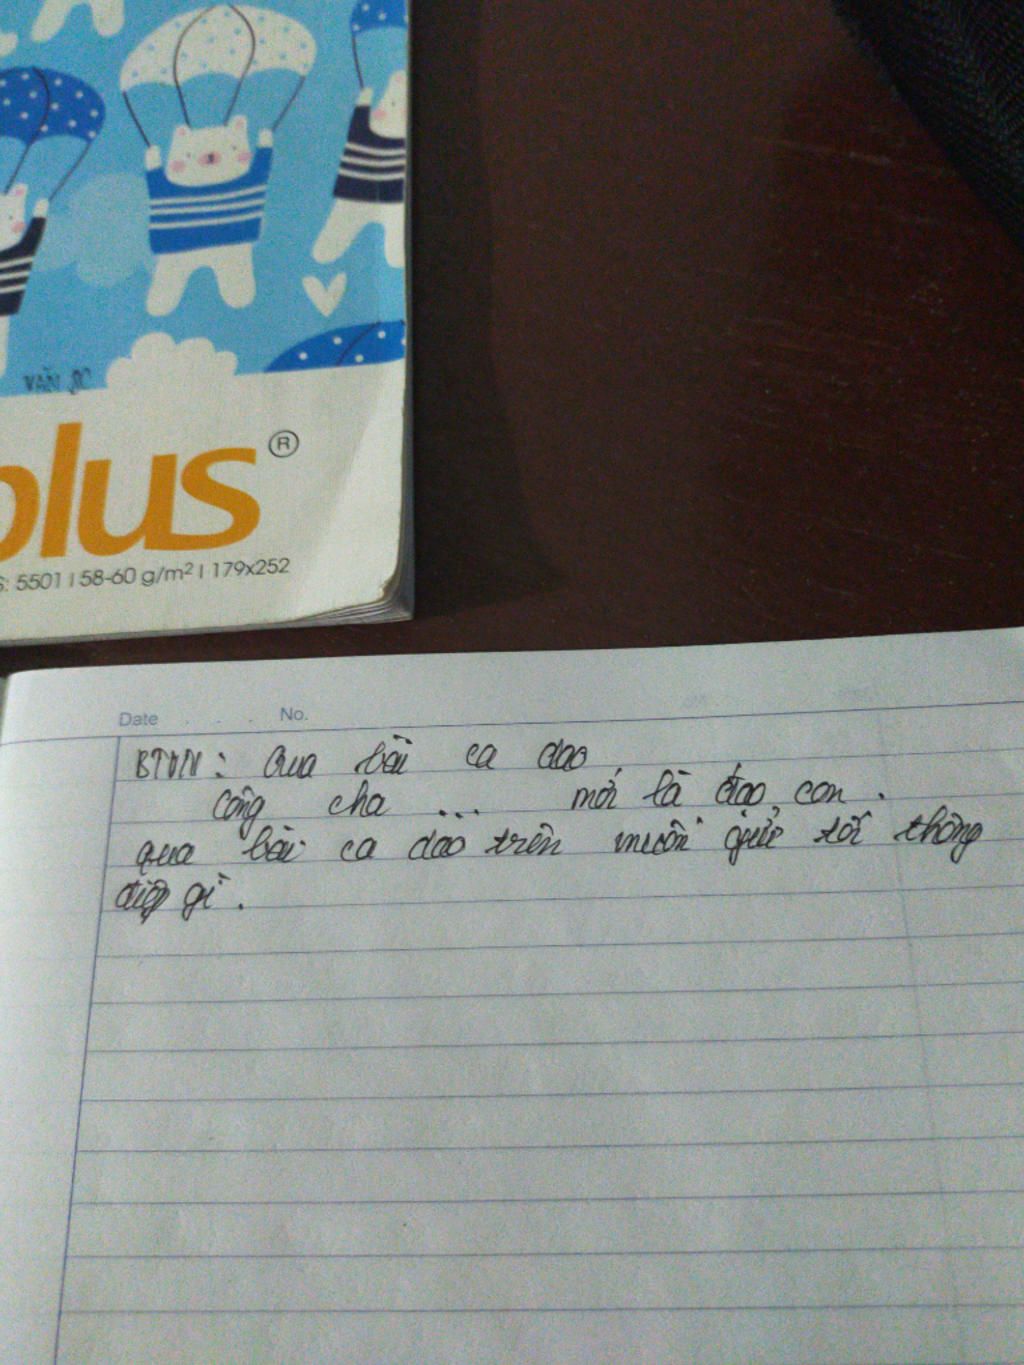 VĂN
plus®
S: 5501 I 58-60 g/m² I 179x252
Date . . . No.
BTVN: Qua bài ca dao
công cha ... mới là đạo con.
qua bài ca dao trên muốn gửi tới thông
điệp gì.